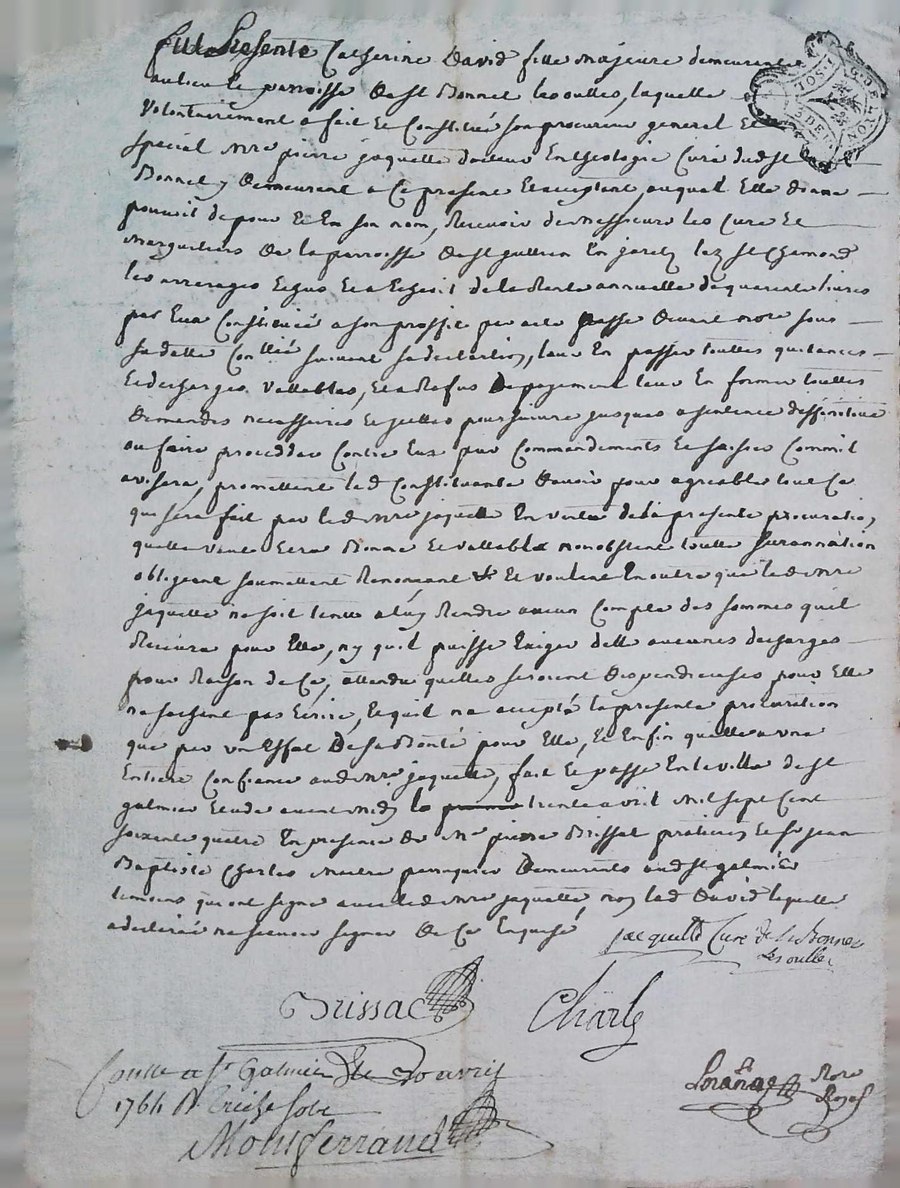 fut Presente Catherine David fille majeure demeurant
au lieu et parroisse de st Bonnet les oulles, laquelle
volontairement a fait et constitué son procureur general et
special mre pierre jaquette docteur en theologie curé dudt st
Bonnet y demeurant a ce present et acceptant, auquel elle donne
pouvoir de pour et en son nom, recevoir de messieurs les curé et
marguilliers de la parroisse de st jullien en jarez lez st chamond
les arrerages echus et a echeoir de la rente annuelle de quarente livres
par eux constituée a son proffit par acte passé devant nore sous
sa datte suivant sa declaration, leur en passer touttes quitances
et decharges vallables, et a refus de payement leur en former touttes
demandes necessaires et jcelles poursuivre jusques a sentence deffinitive
ou faire proceder contre eux par commandements et saisies comm'il
avisera, promettant lad constituante d'avoir pour agreable tout ce
que sera fait par led mre jaquette en vertu de la presente procuration
quelle veut etre bonne et vallable nonobstant toutte surannation
obligeant soumettant renonceant & et voulant en outre que led mre
jaquette ne soit tenu a luy rendre aucun compte des sommes quil
recevra pour elle, ny quil puisse exiger delle aucunes decharges
pour raison de ce, attendu quelles seroient dispendieuses pour elle
ne sachant pas ecrire, et quil na accepté la presente procuration
que par un effet de sa bonté pour elle, et enfin quelle a une
entiere confiance aud mre jaquette, fait et passé en la ville de st
galmier etude avant midy le trente avril mil sept cent
soixente quatre en presence de me pierre Brissac praticien et sr jean
Baptiste Charles maitre perruquier demeurants aud st galmier
temoins qui ont signé avec led mre jaquette non lad David laquelle
a declaré ne scavoir signer de ce enquise
jacquette Curé de st Bonnet
les oulles
Brissac
Charle
Conllé a st Galmier le
1764 R treize sols
Montferrand
nore
Royal